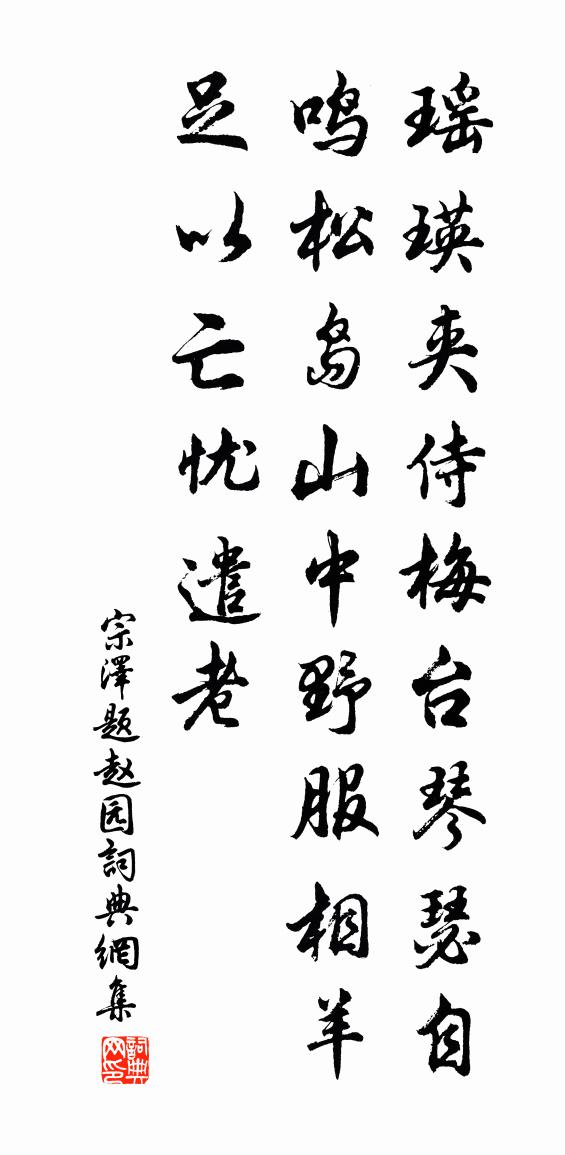 瑶瑛夹侍梅台琴瑟自
鸣松岛山中野服相羊
足以亡忧遣老
宗澤题赵园詞典網集
詞典网印